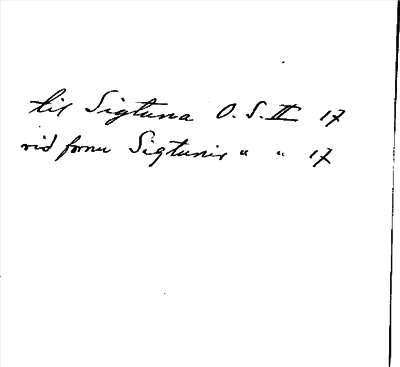 til Sigtuna O.S. II 17
við fornu Sigtunir " " 17